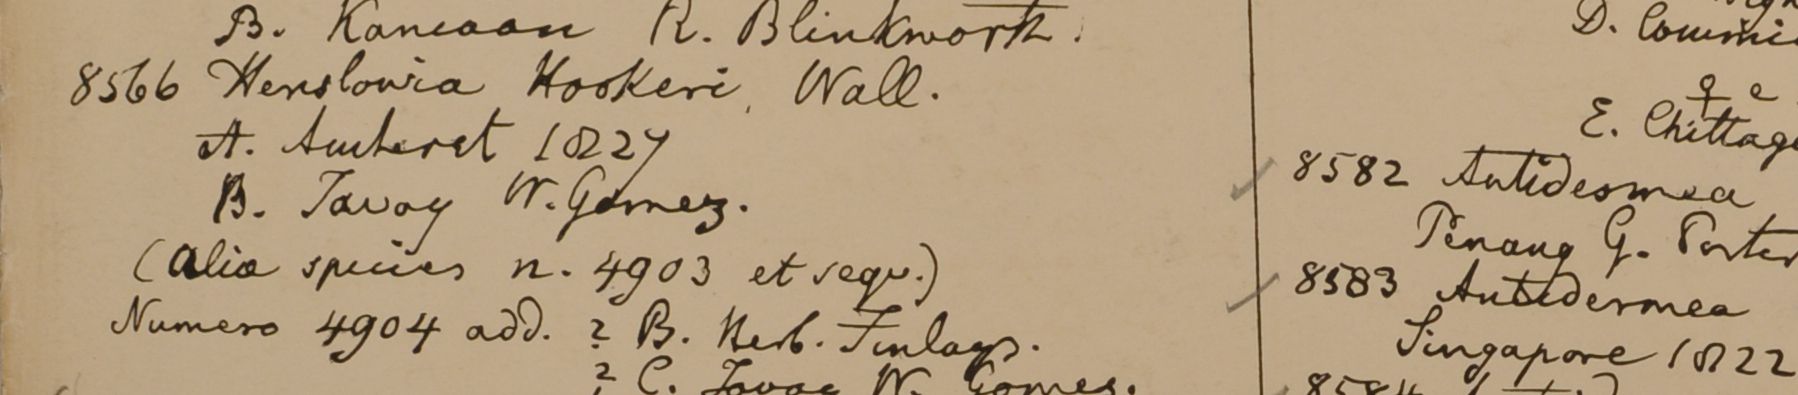 B. Kamaon R. Blinkworth.
8566 Henslowia Hookeri, Wall.
A. Amherst 1827
B. Tavoy W. Gomez.
(alia species n. 4903 et sequ.)
Numero 4904 add. ? B. Herb. Finlays.
? C. Tavoy W. Gomez.
D.
♀ e
E. Chittag
8582 Antidesmea
Penang G. Porter
8583 Antidesmea
Singapore 1822
8584